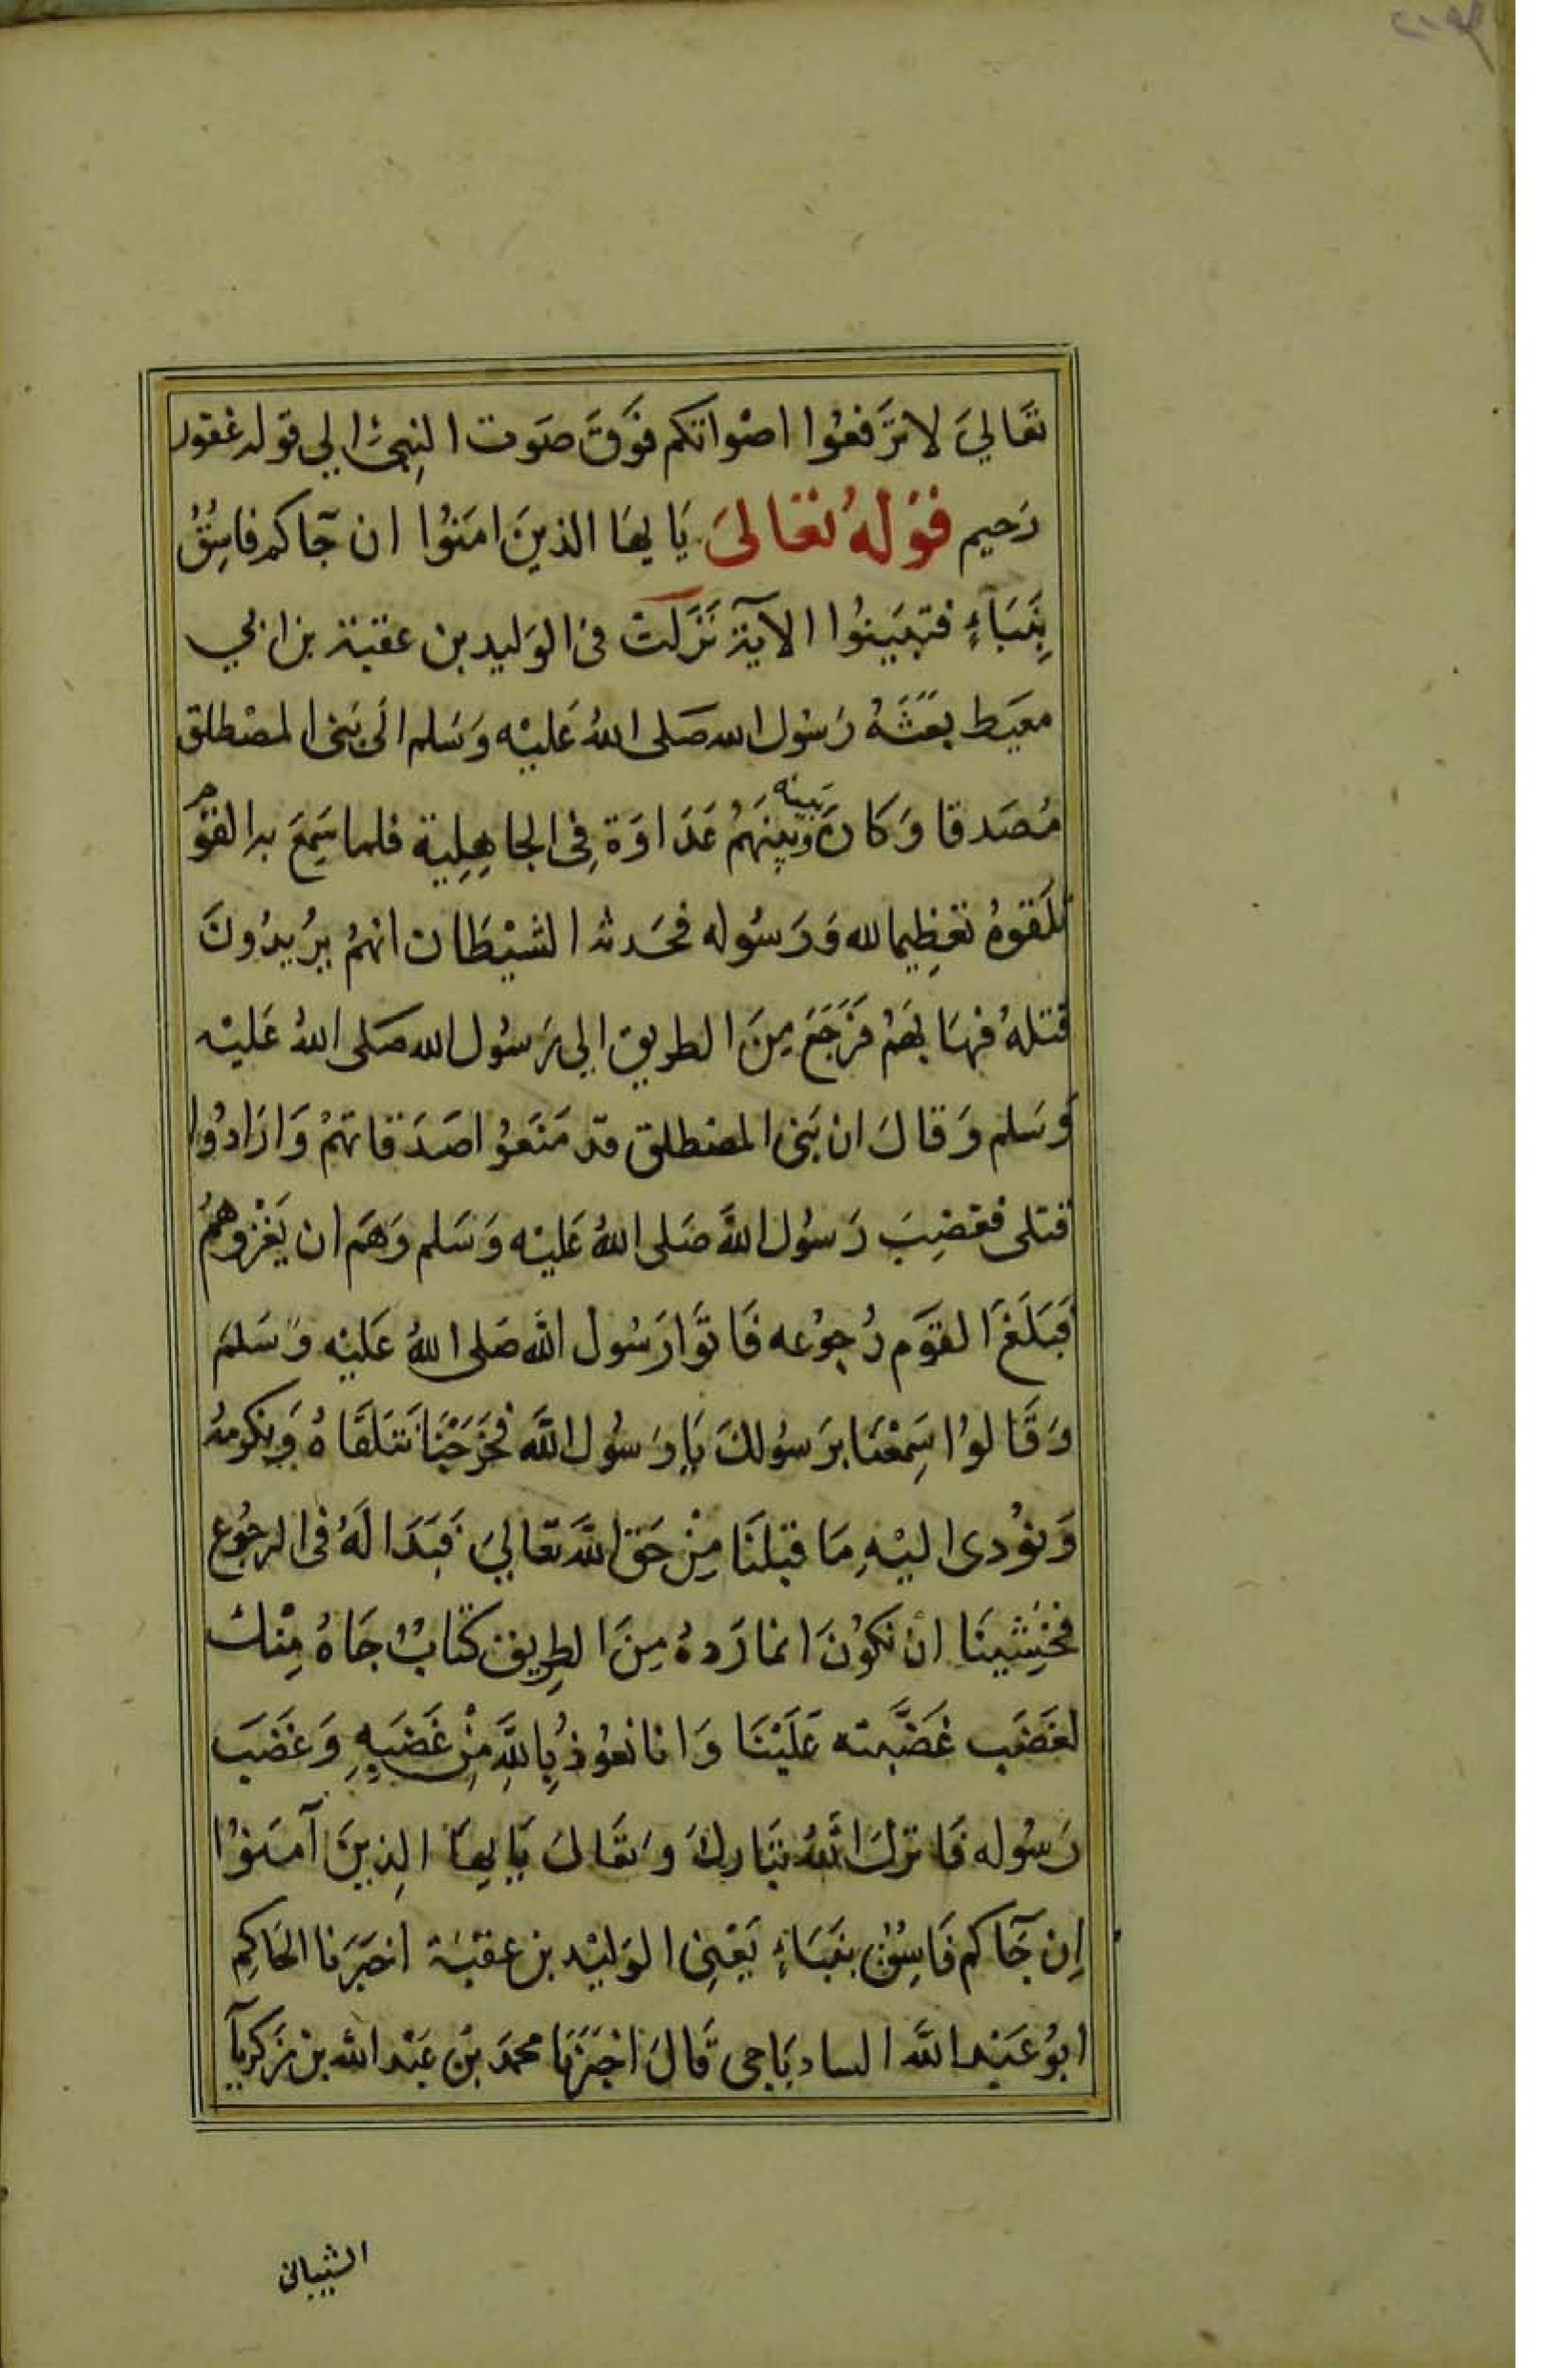 تعَاليَ لا ترَفعُوا اصْواتكم فوَقَ صَوت النبِيّ الي قوله غفور
رَحيم قوْلهُ تعَالىَ يَا يهَا الذينَ امَنوُا ان جَآكم فاسِقُ
بِنبَاءٍ فتبَينوُا الآية نَزَلتْ فى الوَليد بن عقبة بن ابي
معيَط بعَثَهُ رَسُول الله صَلى اللهُ عَليْه وَسَلم الَى بَنى المصْطلق
مُصَدقا وَكانَ بَينه وبينهَمُ عَدَاوَة فِى الجاهِلِية فلما سَمِعَ به القوَم
تلَقوهُ تعظِيما لله وَرَسُوله فحَدثه الشيْطَان انهمُ يرُيدُونَ
قتلهُ فهَابهَمُ فرَجَعَ مِنَ الطريق الي رَسُول الله صَلى اللهُ عَليْه
وَسَلم وَقالَ ان بَنى المصْطلق قد مَنعَوُا صَدَقاتهمُ وَارَادُوا
قتلى فغضِبَ رَسُول اللهَّ صَلى اللهُ عَليْه وَسَلم وَهمَ ان يَغْزوهمُ
فبَلَغَ القوَم رُجوُعه فَاتوَا رَسُول اللهَّ صَلى اللهُ عَليْه وَسَلمَ
وَقَالوُا سَمِعْنَا برَسوُلكَ يَا رَسُول اللهَّ فخرَجْنَا نتلَقاهُ وَنكرمهُ
وَنوُدى اليْهِ مَا قبلَنا مِنْ حَق اللهَّ تعَاليَ فبَدَا لهُ فى الرجُوع
فخشِينَا ان نكوُنَ انما رَدهُ مِنَ الطرِيق كتابُ جَاهُ مِنْكَ
لغضَب غَضَبته عَليْنَا وَانا نعوُذ باِللَّهِ مِنْ غضَبِهِ وَغضَبَ
رَسُوله فَانزلَ اللهُ تبَاركَ وَتعَالىَ يَا يهَا الذِينَ آمنوُا
إن جَآكم فَاسِقُ بنبَاءٍ يَعْنِى الوَليْد بن عقبْة اخبَرَنا الحَاكِم
ابوُ عَبْد اللهَّ الساديَاجى قَالَ اخبَرَنا محمدَ بنْ عَبْد الله بن زَكريآ
الشيبانى